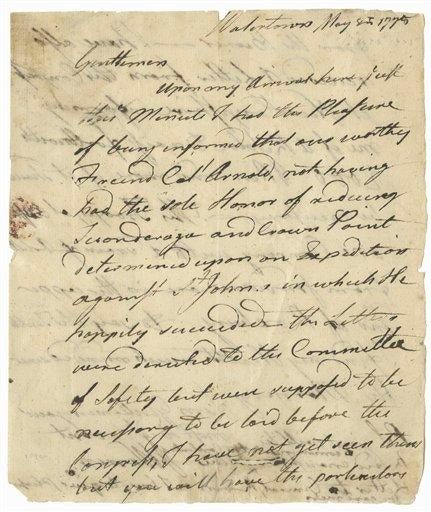 Watertown May 1775
Gentlemen
Upon my Arrival here just
this Minute I had the Pleasure
of being informed that our worthy
Freind Col Arnold, not having
had the sole Honor of reducing
Ticonderoga and Crown Point
determined upon an Expedition
against St Johns in which He
happily succeeded the Letters
were directed to the Committee
of Safety but were supposed to be
necessary to be laid before the
Congress, I have not yet seen them
but you will have the particulars